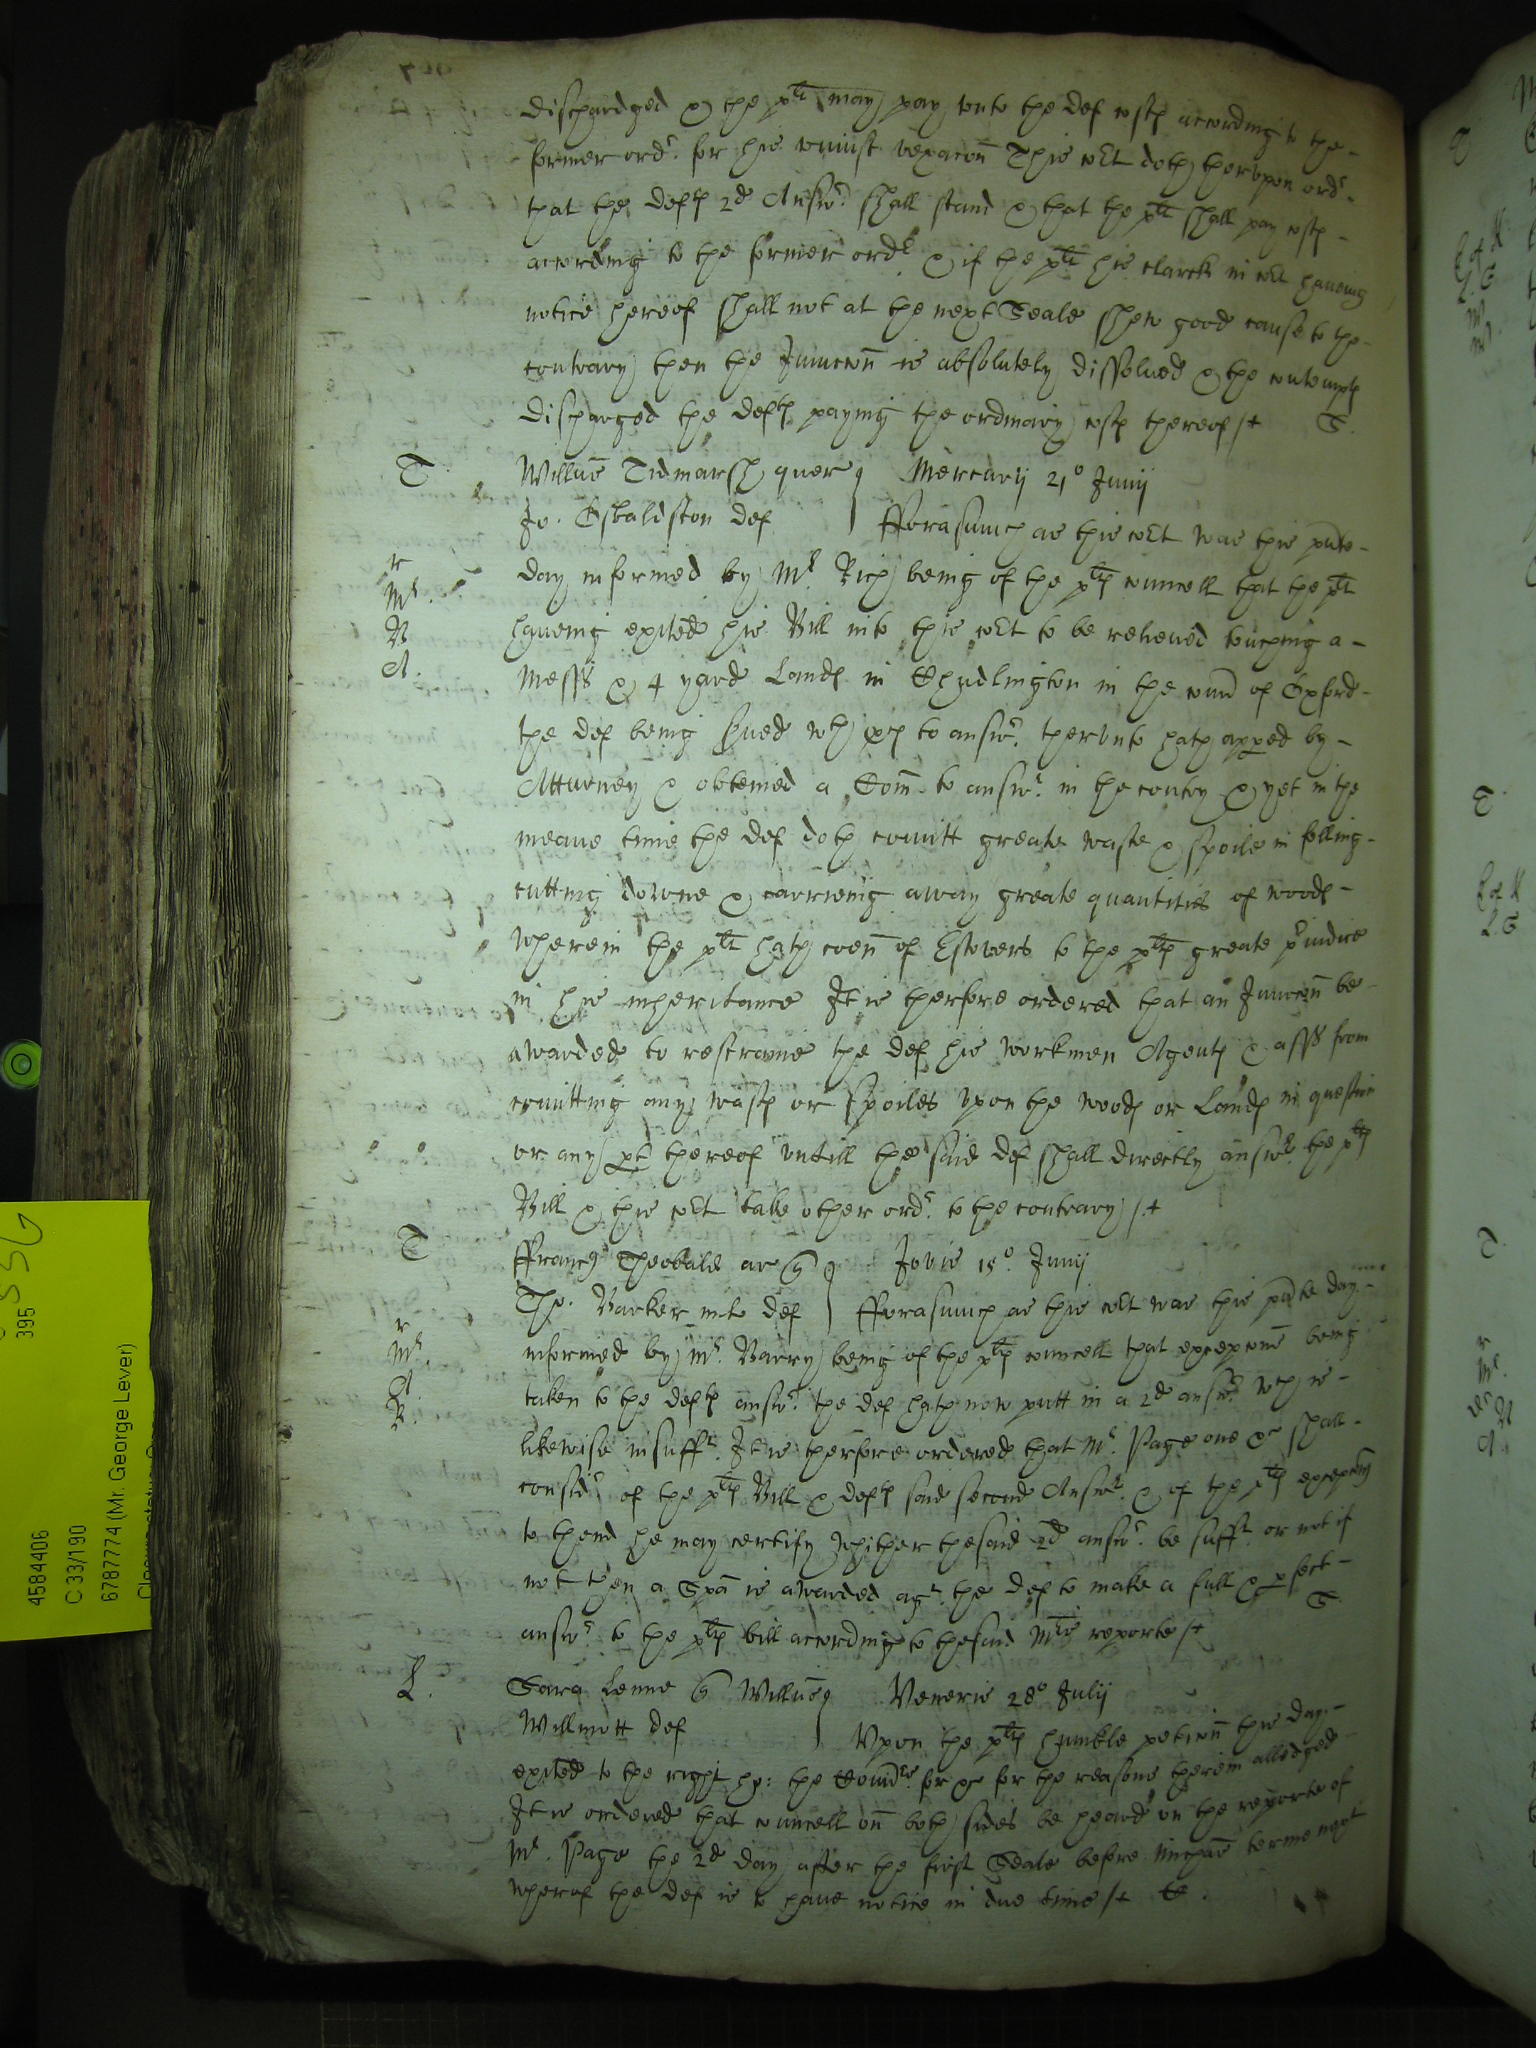 dischardged & the plt may pay unto the def costs according to the
former ordr. for his uniust vexacon This Cort doth therupon ordr.
that the defts 2d Answr. shall stand & that the plt shall pay costs
according to the former ordr. & if the plts his clarck in Cort haueing
notice hereof shall not at the next Seale shew good cause to the
contrary then the Iniuncon is absolutely dissolued & the contempts
discharged the defts paying the ordinary costs thereof /
S.
T
Willus Tidmarsh quer Mercurij 21o Junij
Jo. Osbaldston def fforasmuch as this Cort was this pnte
r
Mr.
B
A.
day informed by Mr. Rich being of the plts councell that the plt
haueing exited his Bill into this Cort to be releiued touching a
Mess & 4 yard Lands in Chudlington in the Coun of Oxford
the def being serued wth pces to answr. therunto hath apped by
Atturney & obteined a Com to answr. in the contry & yet in the
meane time the def doth comitt greate waste & spoile in felling
cutting downe & carrieing away greate quantities of woods
wherein the plt hath coen of Estovers to the plts greate preiudice
in his inheritance It is therfore ordered that an Iniuncon be
awarded to restraine the def his workmen Agents & asss from
comitting any wasts or spoiles vpon the woods or Lands in question
or any pt thereof vntill the said def shall directly answr. the plts
Bill & this Cort take other ordr. to the contrary /
T
ffrancs Theobald ar q Jovis 15o. Junij
Tho. Barker mil def fforasmuch as this Cort was this pnte day
r
Mr.
A.
B.
informed by Mr. Barry being of the plts councell that excepcons being
taken to the defts answr. the def hath now putt in a 2d answr. wch is
likewise insufft. It is therfore ordered that Mr. Page one &c shall
considr of the plts Bill & defts said second Answr. & of the plts excepcons
to thend he may certify whither thesaid 2d answr. be sufft. or not if
not then a Spa is awarded agt. the def to make a full & pfect
answr. to the plts bill according to thesaid Mrs reporte /
S.
L.
Sara Lenne q Willus Veneris 28o Julij
Willmott def Vpon the plts humble peticon this day
exited to the right ho: the Comrs. for &c for the reasons therein alledged
It is ordered that councell on both sides be heard on the reporte of
Mr. Page the 2d day after the first Seale before Michas terme next
wherof the def is to haue notice in due time /
395
4584406
C 33/190
6787774 (Mr. George Lever)